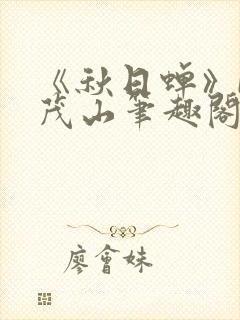 《秋日蝉》
茂山筆趣閣
廖會妹